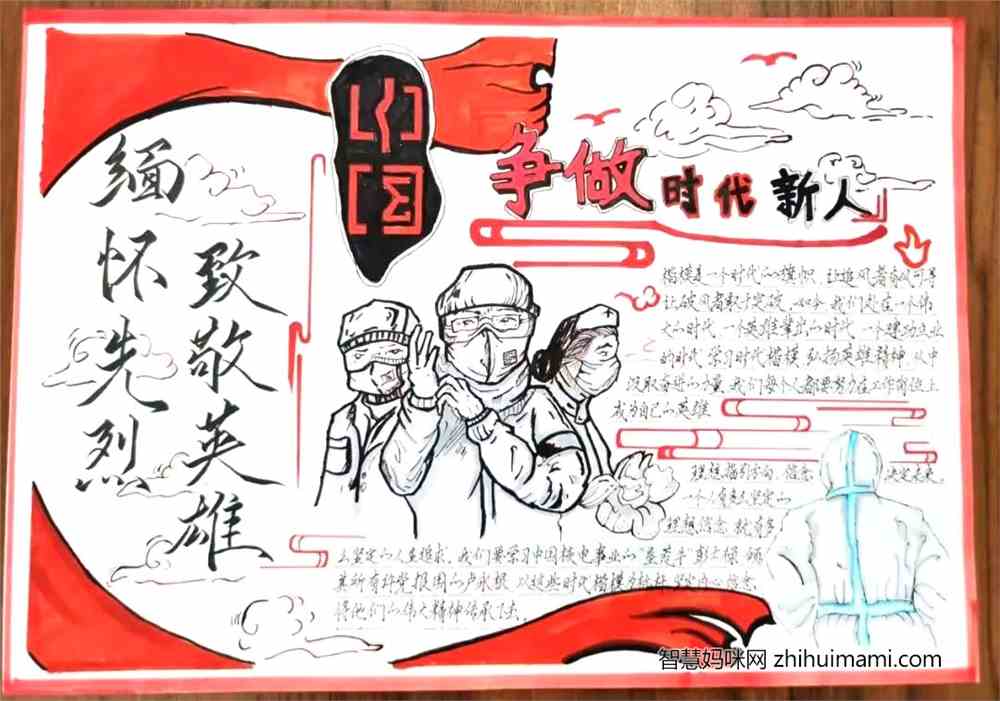 缅怀先烈
致敬英雄
中国
争做时代新人
楷模是一个时代的旗帜，让追风者有风可寻
让破风者敢于突破，如今我们处在一个伟
大的时代，一个英雄辈出的时代，一个建功立业
的时代，学习时代楷模，弘扬英雄精神，从中
汲取奋进的力量，我们每个人都要努力在工作岗位上
成为自己的英雄
理想指引方向，信念决定未来。
一个人有多么坚定的
理想信念，就有多
么坚定的人生追求，我们要学习中国核电事业的"垦荒牛"彭士禄，倾
其所有补党报国的卢永根，以这些时代楷模为标杆，坚定内心信念，
将他们的伟大精神传承下去。
智慧妈咪网 zhihuimami.com